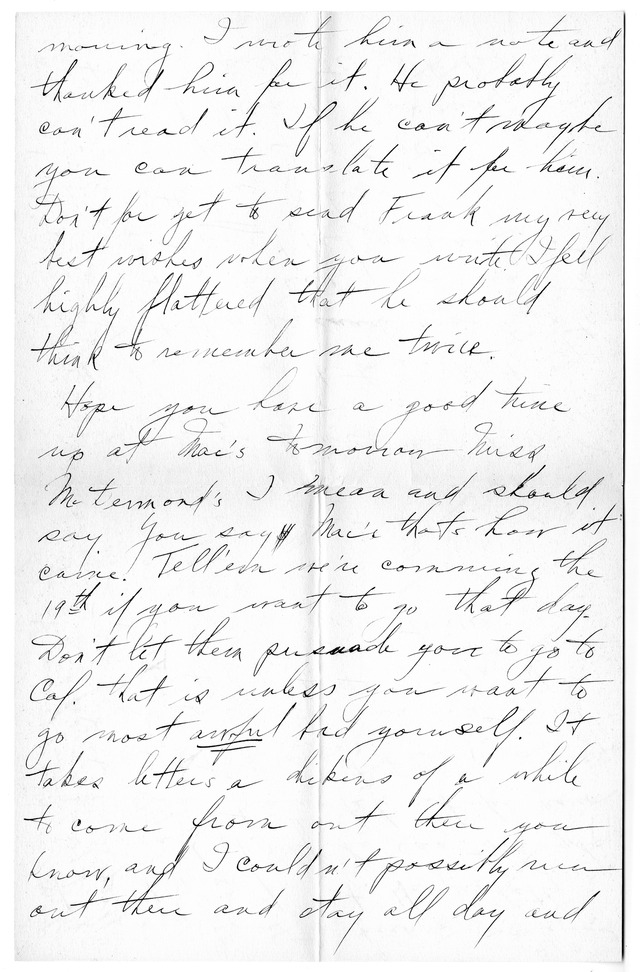 morning. I wrote him a note and
thanked him for it. He probably
can't read it. If he can't maybe
you can translate it for him.
Don't for get to send Frank my very
best wishes when you write. I feel
highly flattered that he should
think to remember me twice.
Hope you have a good time
up at Mac's tomorrow Miss
McDermond's I mean and should
say. You say Mac's that's how it
came. Tell'em we're comming the
19th if you want to go that day.
Don't let them persuade you to go to
Cal. that is unless you want to
go most awful bad yourself. It
takes letters a dikens of a while
to come from out there you
know, and I couldn't possibly run
out there and stay all day and